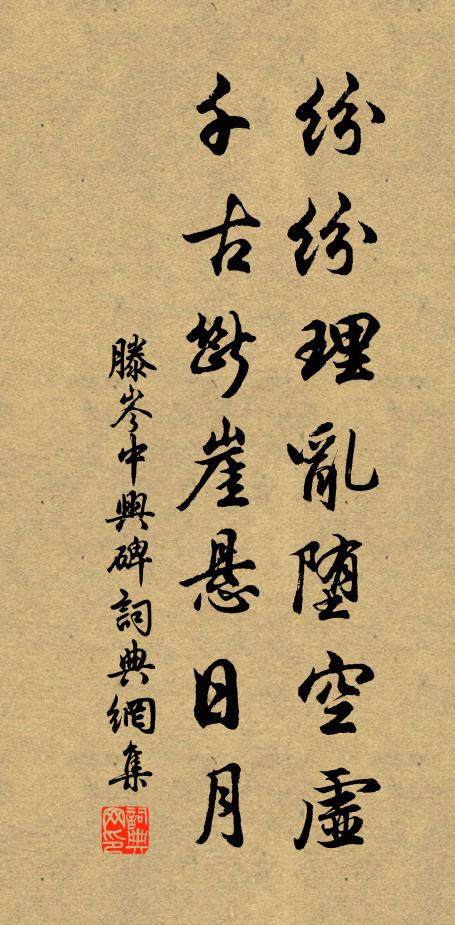 纷纷理亂堕空虛
千古斷崖悬日月
滕岑中興碑詞典網集
詞典网印